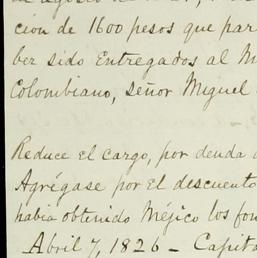 cion de 1600 pesos que par
ber sido Entregados al M
Colombiano, señor Miguel
Reduce el cargo, por deuda
Agrégase por el descuento
habia obtenido Méjico los fon
Abril 7, 1826 - Capita